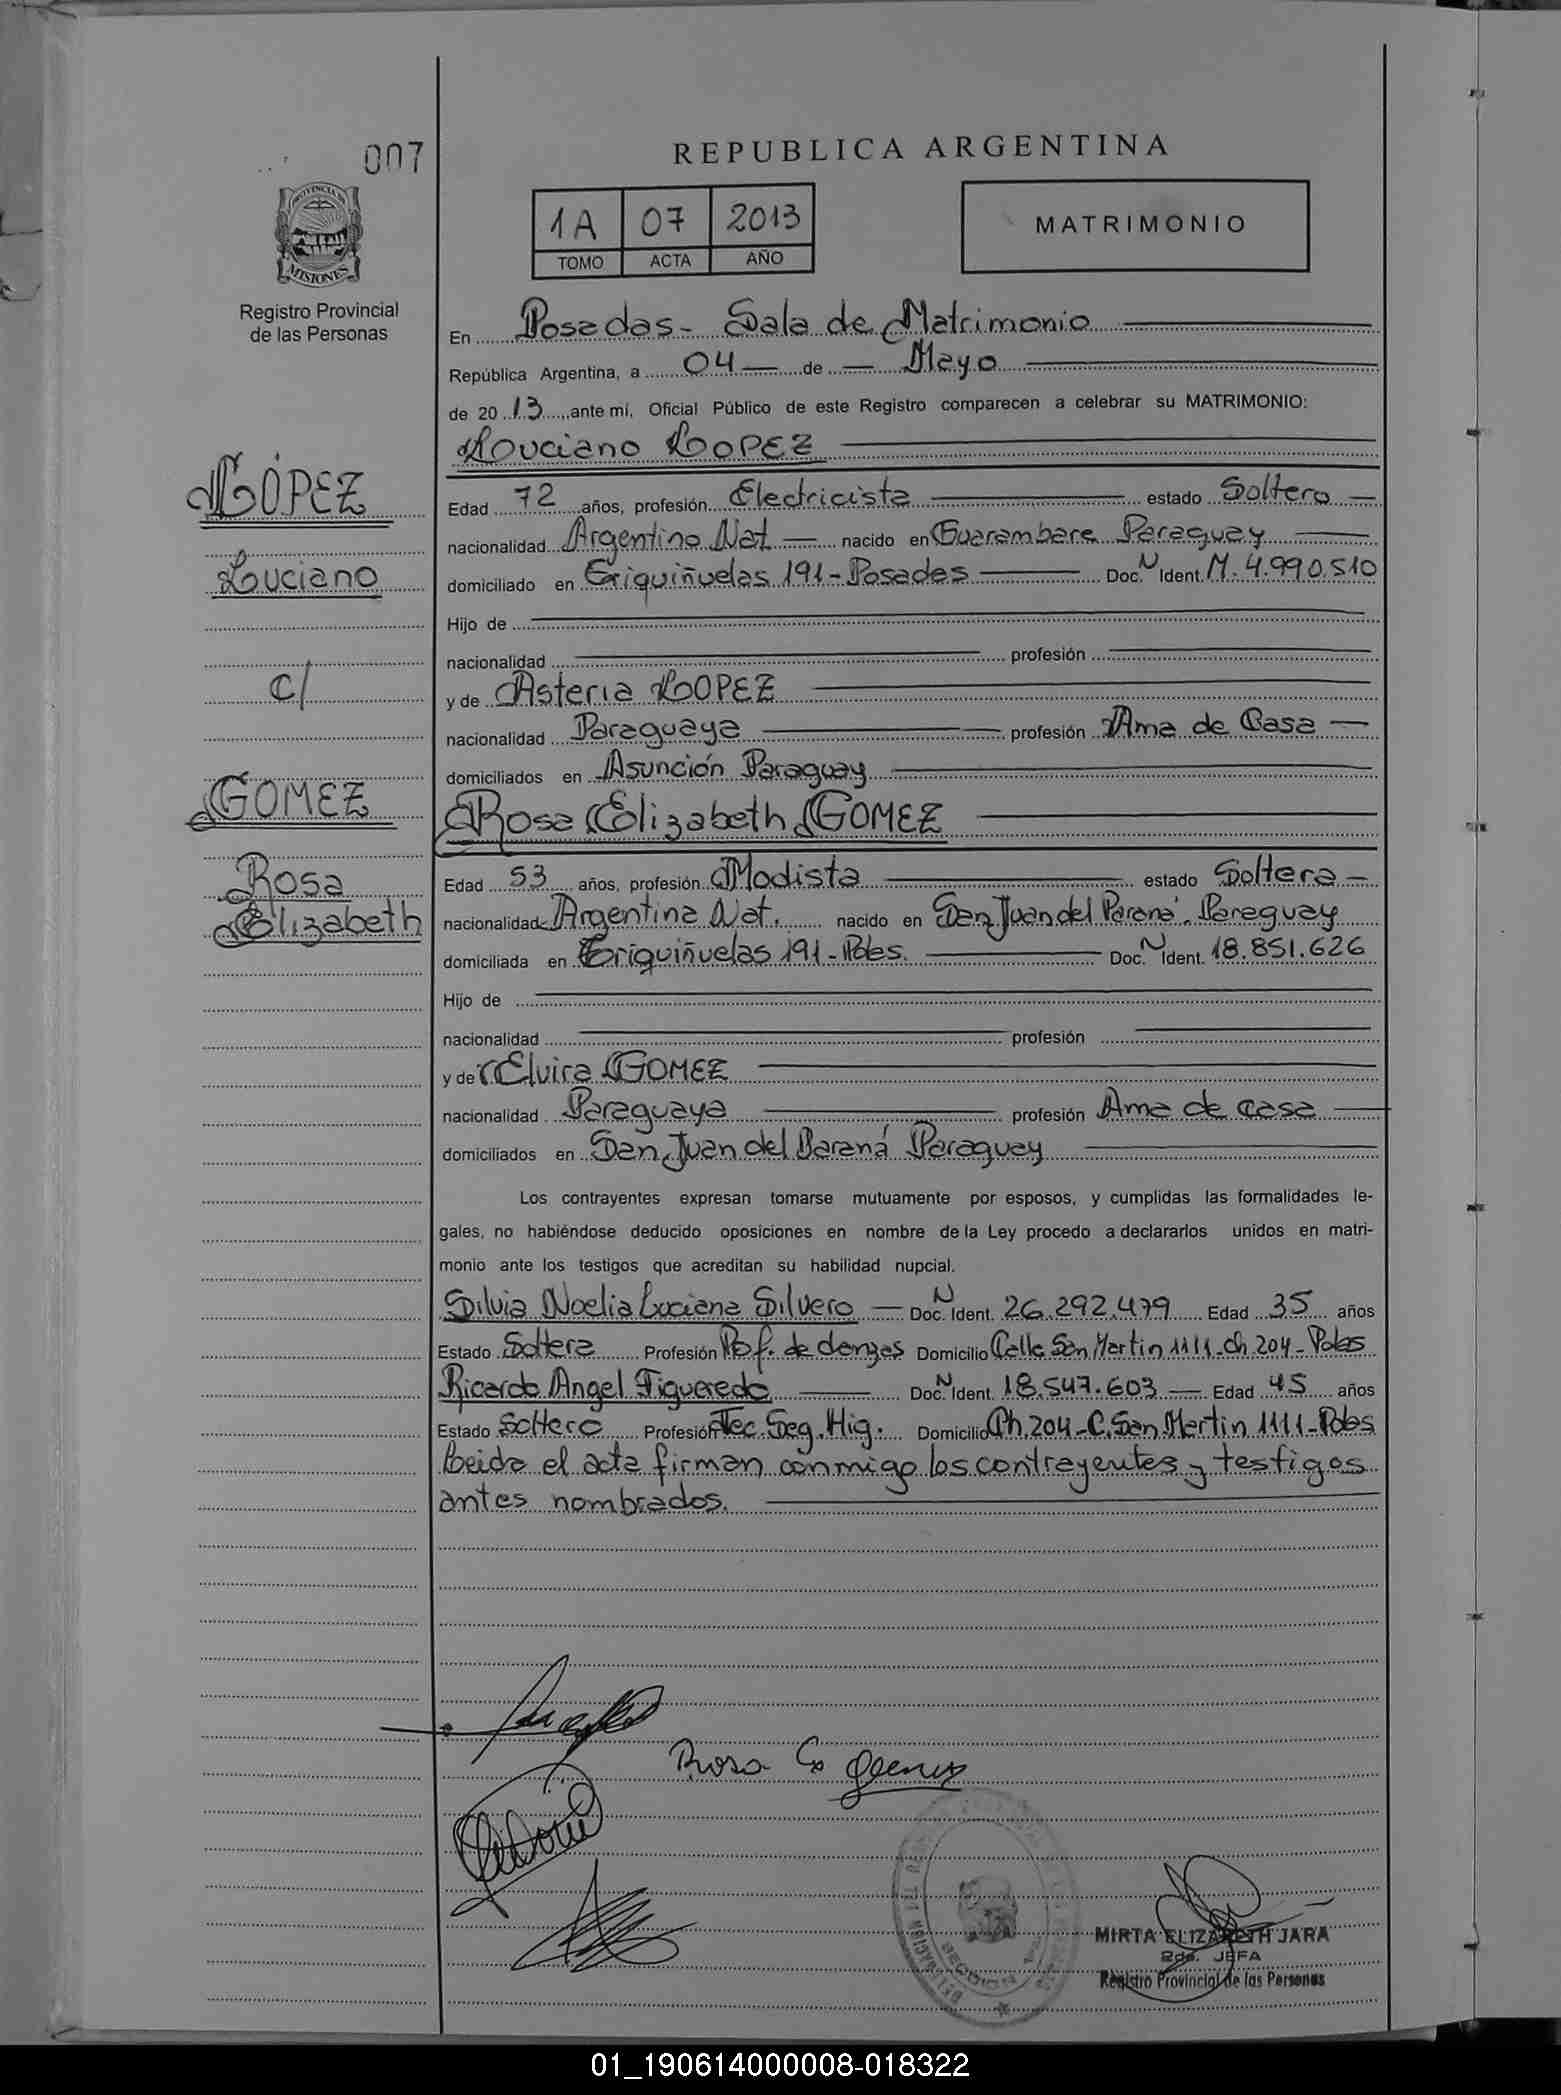 007
REPUBLICA ARGENTINA
PROVINCIA DE
MISIONES
Registro Provincial
de las Personas
1A 07 2013
TOMO ACTA AÑO
MATRIMONIO
En Posadas - Sala de Matrimonio
República Argentina, a 04 de Mayo
de 20 13 ante mí, Oficial Público de este Registro comparecen a celebrar su MATRIMONIO:
Luciano LOPEZ
LÓPEZ
Luciano
c/
GOMEZ
Rosa
Elizabeth
Edad 72 años, profesión Electricista estado Soltero
nacionalidad Argentino Nat nacido en Guarambare Paraguay
domiciliado en Triquiñuelas 191 - Posadas Doc. N Ident. M. 4.990.510
Hijo de
nacionalidad profesión
y de Asteria LOPEZ
nacionalidad Paraguaya profesión Ama de Casa
domiciliados en Asunción Paraguay
Rosa Elizabeth GOMEZ
Edad 53 años, profesión Modista estado Soltera
nacionalidad Argentina Nat. nacido en San Juan del Paraná. Paraguay
domiciliada en Triquiñuelas 191 - Pdas. Doc. N Ident. 18.851.626
Hijo de
nacionalidad profesión
y de Elvira GOMEZ
nacionalidad Paraguaya profesión Ama de casa
domiciliados en San Juan del Paraná Paraguay
Los contrayentes expresan tomarse mutuamente por esposos, y cumplidas las formalidades le-
gales, no habiéndose deducido oposiciones en nombre de la Ley procedo a declararlos unidos en matri-
monio ante los testigos que acreditan su habilidad nupcial.
Silvia Noelia Luciana Silvero Doc. N Ident. 26.292.479 Edad 35 años
Estado Soltera Profesión Prof. de danzas Domicilio Calle San Martin 1111 - ch 204 - Pdas
Ricardo Angel Figueredo Doc. N Ident. 18.547.603 Edad 45 años
Estado Soltero Profesión Tec. Seg. Hig. Domicilio Ch. 204 - C. San Martin 1111 - Pdas
Leida el acta firman conmigo los contrayentes y testigos
antes nombrados.
Rosa
MIRTA ELIZABETH JARA
2da. JEFA
Registro Provincial de las Personas
01_190614000008-018322